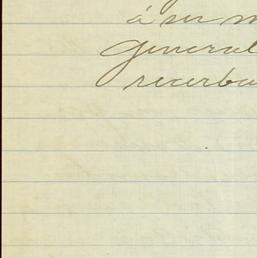 á su m
General
recerba